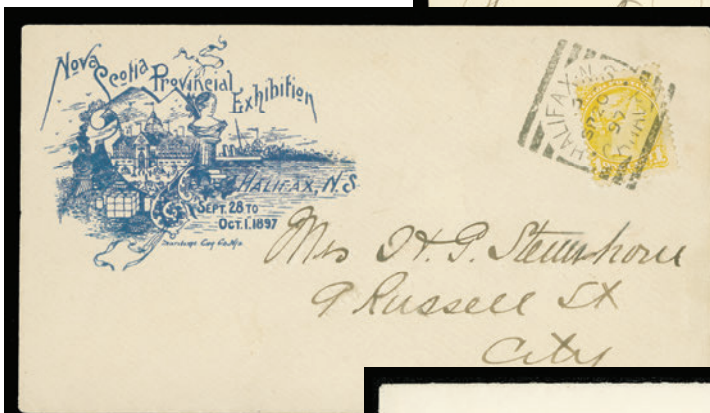 Nova Scotia Provincial Exhibition
HALIFAX, N.S.
SEPT. 28 TO
OCT. 1. 1897
HALIFAX, N.S.
SP 20
97
CANADA
Mrs H. G.
9 Russell St
City